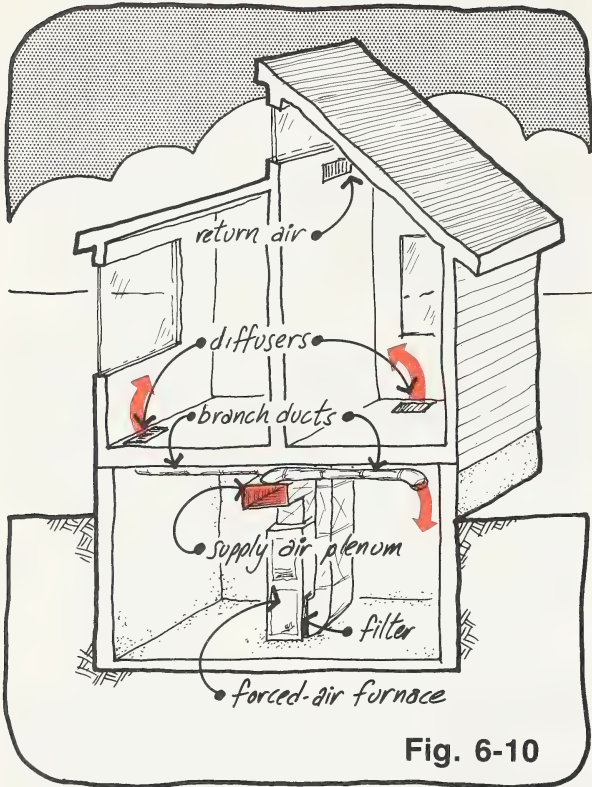 return air
diffusers
branch ducts
supply air plenum
filter
forced-air furnace
Fig. 6-10